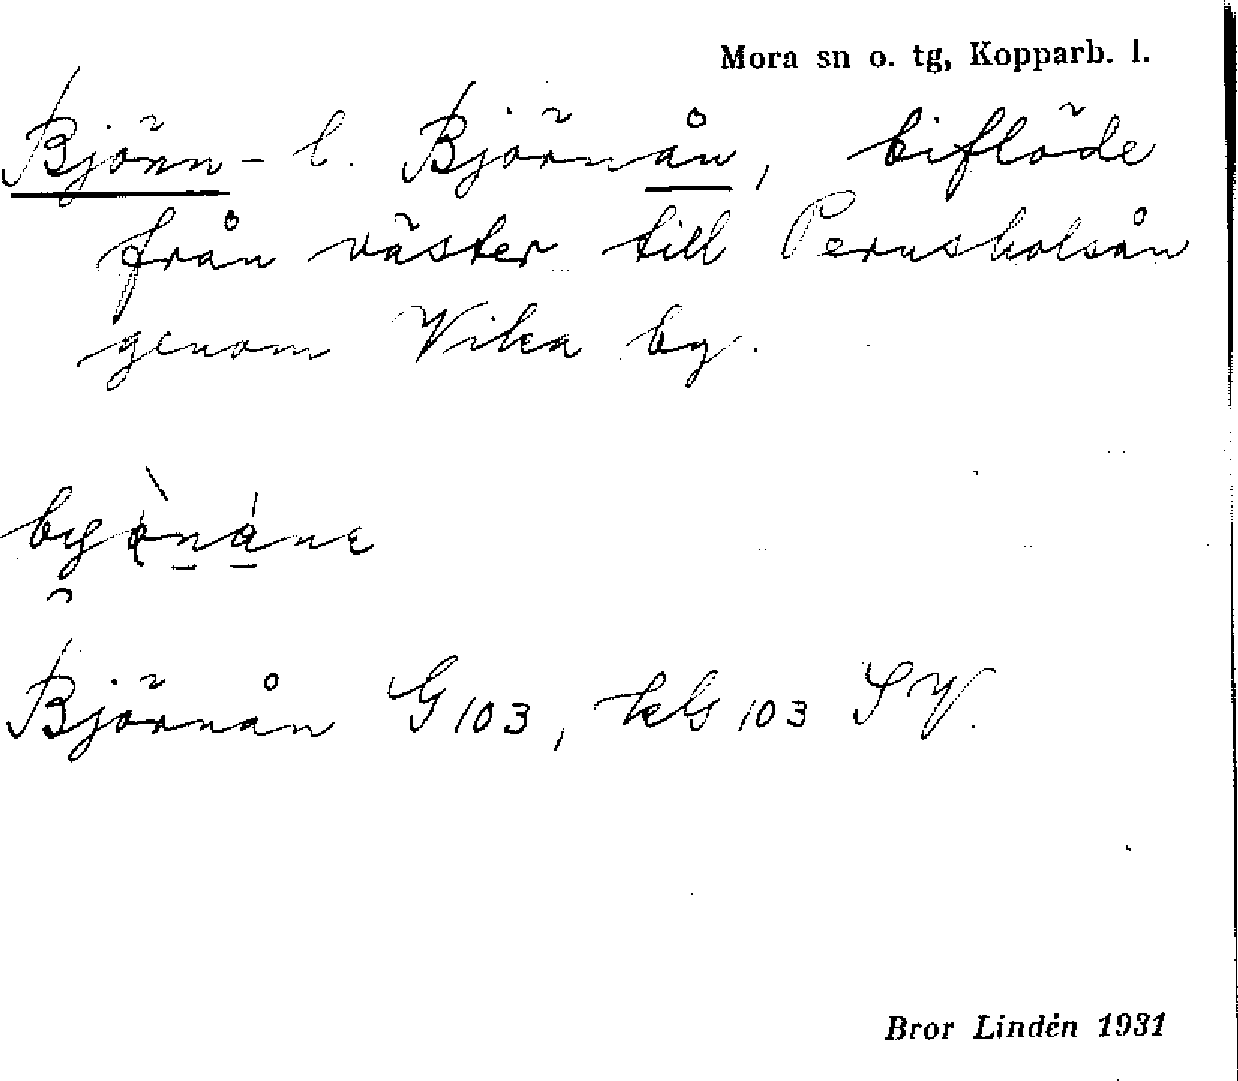 Mora sn o. tg, Kopparb. l.
Björn- l. Björnån, biflöde
från väster till Pernsholsån
genom Vika by.
Björnån G 103, kG 103 SV.
Bror Lindén 1931